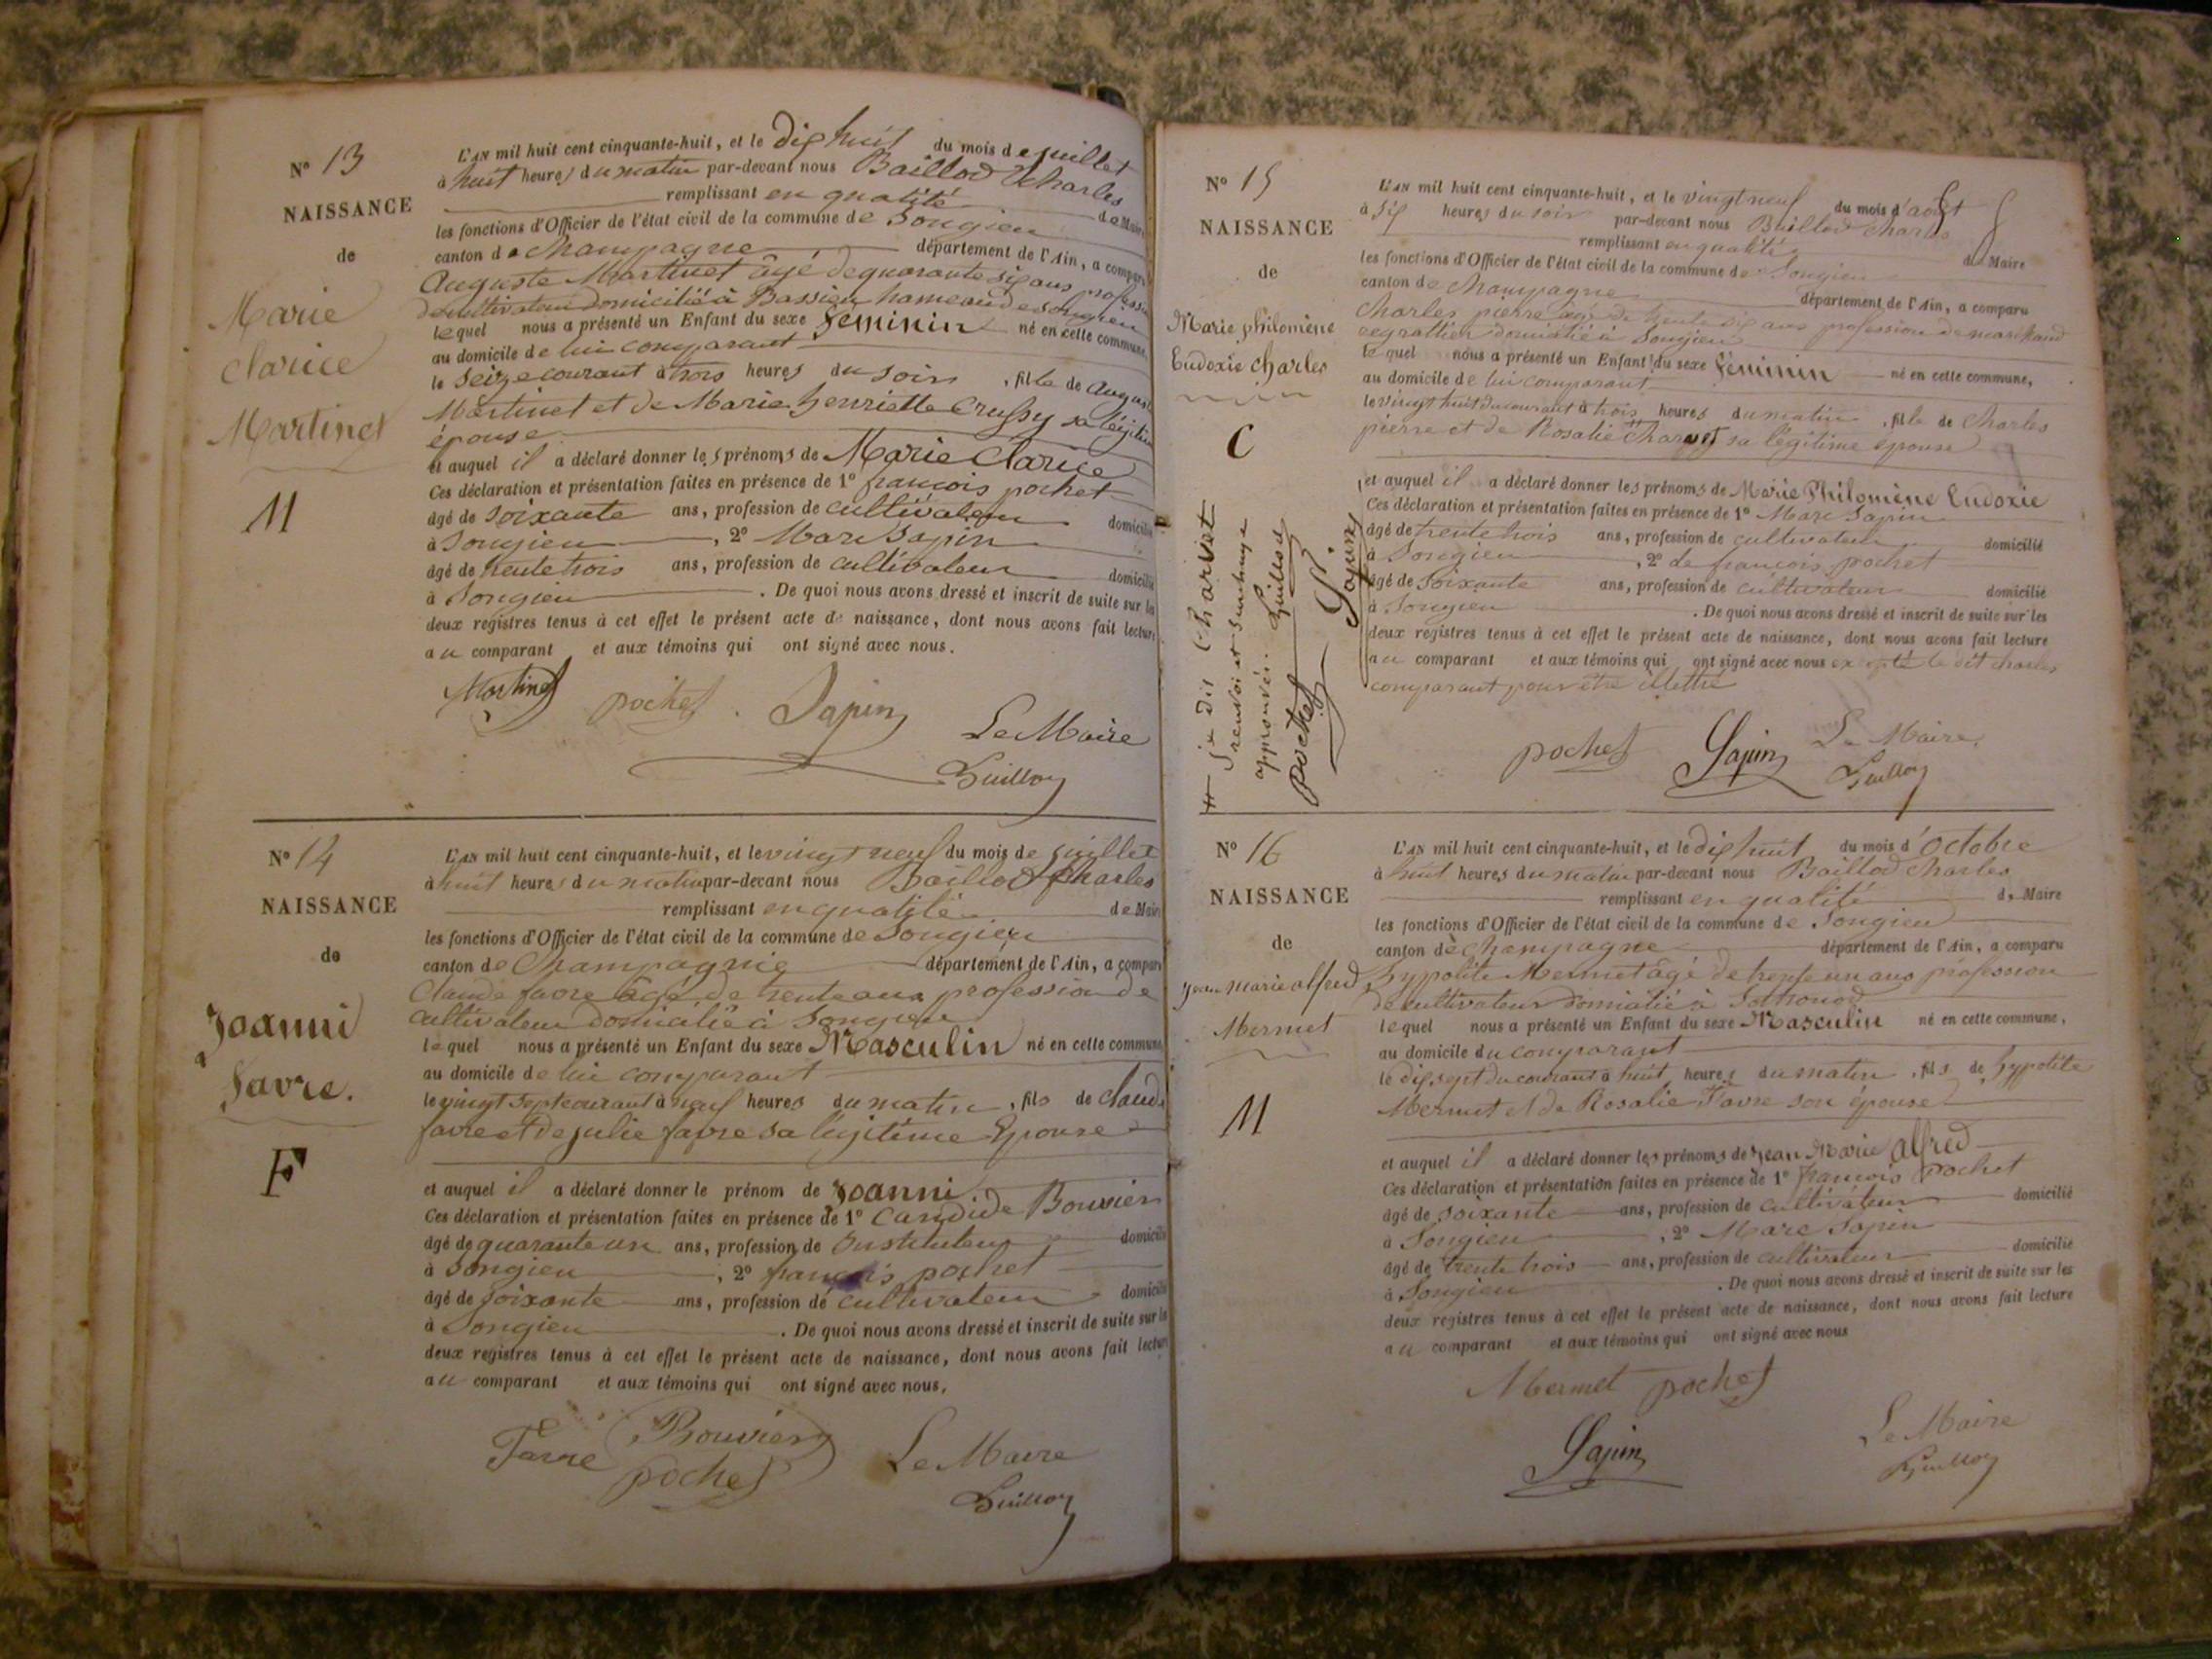 N° 13
NAISSANCE
de
Marie
Clarice
Martinet
M
L'AN mil huit cent cinquante-huit, et le dix huit du mois de juillet
à huit heures du matin par-devant nous Baillod Charles
remplissant en qualité de Maire
les fonctions d'Officier de l'état civil de la commune de Songieu
canton de Champagne département de l'Ain, a comparu
Auguste Martinet âgé de quarante six ans profession
de cultivateur domicilié à Bassieu hameau de Songieu
lequel nous a présenté un Enfant du sexe féminin né en cette commune,
au domicile de lui comparant
le seize courant à trois heures du soir, fille de Auguste
Martinet et de Marie henriette Crussy sa légitime
épouse
et auquel il a déclaré donner les prénoms de Marie Clarice
Ces déclaration et présentation faites en présence de 1° françois pochet
âgé de soixante ans, profession de cultivateur domicilié
à Songieu, 2° Marc Sapin
âgé de trente trois ans, profession de cultivateur domicilié
à Songieu. De quoi nous avons dressé et inscrit de suite sur les
deux registres tenus à cet effet le présent acte de naissance, dont nous avons fait lecture
au comparant et aux témoins qui ont signé avec nous.
Martinet pochet Sapin Le Maire
N° 14
NAISSANCE
de
Joanni
favre.
F
L'AN mil huit cent cinquante-huit, et le vingt neuf du mois de juillet
à huit heures du matin par-devant nous Baillod Charles
remplissant en qualité de Maire
les fonctions d'Officier de l'état civil de la commune de Songieu
canton de Champagne département de l'Ain, a comparu
Claude favre âgé de trente ans profession de
cultivateur domicilié à Songieu
lequel nous a présenté un Enfant du sexe Masculin né en cette commune,
au domicile de lui comparant
le vingt sept courant à neuf heures du matin, fils de claude
favre et de julie favre sa légitime Epouse
et auquel il a déclaré donner le prénom de Joanni
Ces déclaration et présentation faites en présence de 1° Candide Bouvier
âgé de quarante un ans, profession de Instituteur domicilié
à Songieu, 2° françois pochet
âgé de soixante ans, profession de cultivateur domicilié
à Songieu. De quoi nous avons dressé et inscrit de suite sur les
deux registres tenus à cet effet le présent acte de naissance, dont nous avons fait lecture
au comparant et aux témoins qui ont signé avec nous.
Favre Bouvier Le Maire
pochet
N° 15
NAISSANCE
de
Marie philomène
Eudoxie Charles
C
je dis Charvet
renvoi et surcharge
approuvés.
pochet Sapin
L'AN mil huit cent cinquante-huit, et le vingt neuf du mois d'août
à six heures du soir par-devant nous Baillod Charles
remplissant en qualité de Maire
les fonctions d'Officier de l'état civil de la commune de Songieu
canton de Champagne département de l'Ain, a comparu
Charles pierre âgé de trente six ans profession de marchand
domicilié à Songieu
lequel nous a présenté un Enfant du sexe féminin né en cette commune,
au domicile de lui comparant
le vingt huit du courant à trois heures du matin, fille de Charles
pierre et de Rosalie Charvet sa légitime épouse
et auquel il a déclaré donner les prénoms de Marie Philomène Eudoxie
Ces déclaration et présentation faites en présence de 1° Marc Sapin
âgé de trente trois ans, profession de cultivateur domicilié
à Songieu, 2° de françois pochet
âgé de soixante ans, profession de cultivateur domicilié
à Songieu. De quoi nous avons dressé et inscrit de suite sur les
deux registres tenus à cet effet le présent acte de naissance, dont nous avons fait lecture
au comparant et aux témoins qui ont signé avec nous excepté le dit Charles
comparant pour être illettré
pochet Sapin Le Maire
N° 16
NAISSANCE
de
jean marie alfred
Mermet
M
L'AN mil huit cent cinquante-huit, et le dix huit du mois d'octobre
à huit heures du matin par-devant nous Baillod Charles
remplissant en qualité de Maire
les fonctions d'Officier de l'état civil de la commune de Songieu
canton de Champagne département de l'Ain, a comparu
hyppolite Mermet âgé de trente un ans profession
de cultivateur domicilié à Sothonod
lequel nous a présenté un Enfant du sexe Masculin né en cette commune,
au domicile du comparant
le dix sept du courant à huit heures du matin, fils de hypolite
Mermet et de Rosalie Favre son épouse
et auquel il a déclaré donner les prénoms de jean Marie alfred
Ces déclaration et présentation faites en présence de 1° françois pochet
âgé de soixante ans, profession de cultivateur domicilié
à Songieu, 2° Marc Sapin
âgé de trente trois ans, profession de cultivateur domicilié
à Songieu. De quoi nous avons dressé et inscrit de suite sur les
deux registres tenus à cet effet le présent acte de naissance, dont nous avons fait lecture
au comparant et aux témoins qui ont signé avec nous
Mermet pochet
Sapin Le Maire